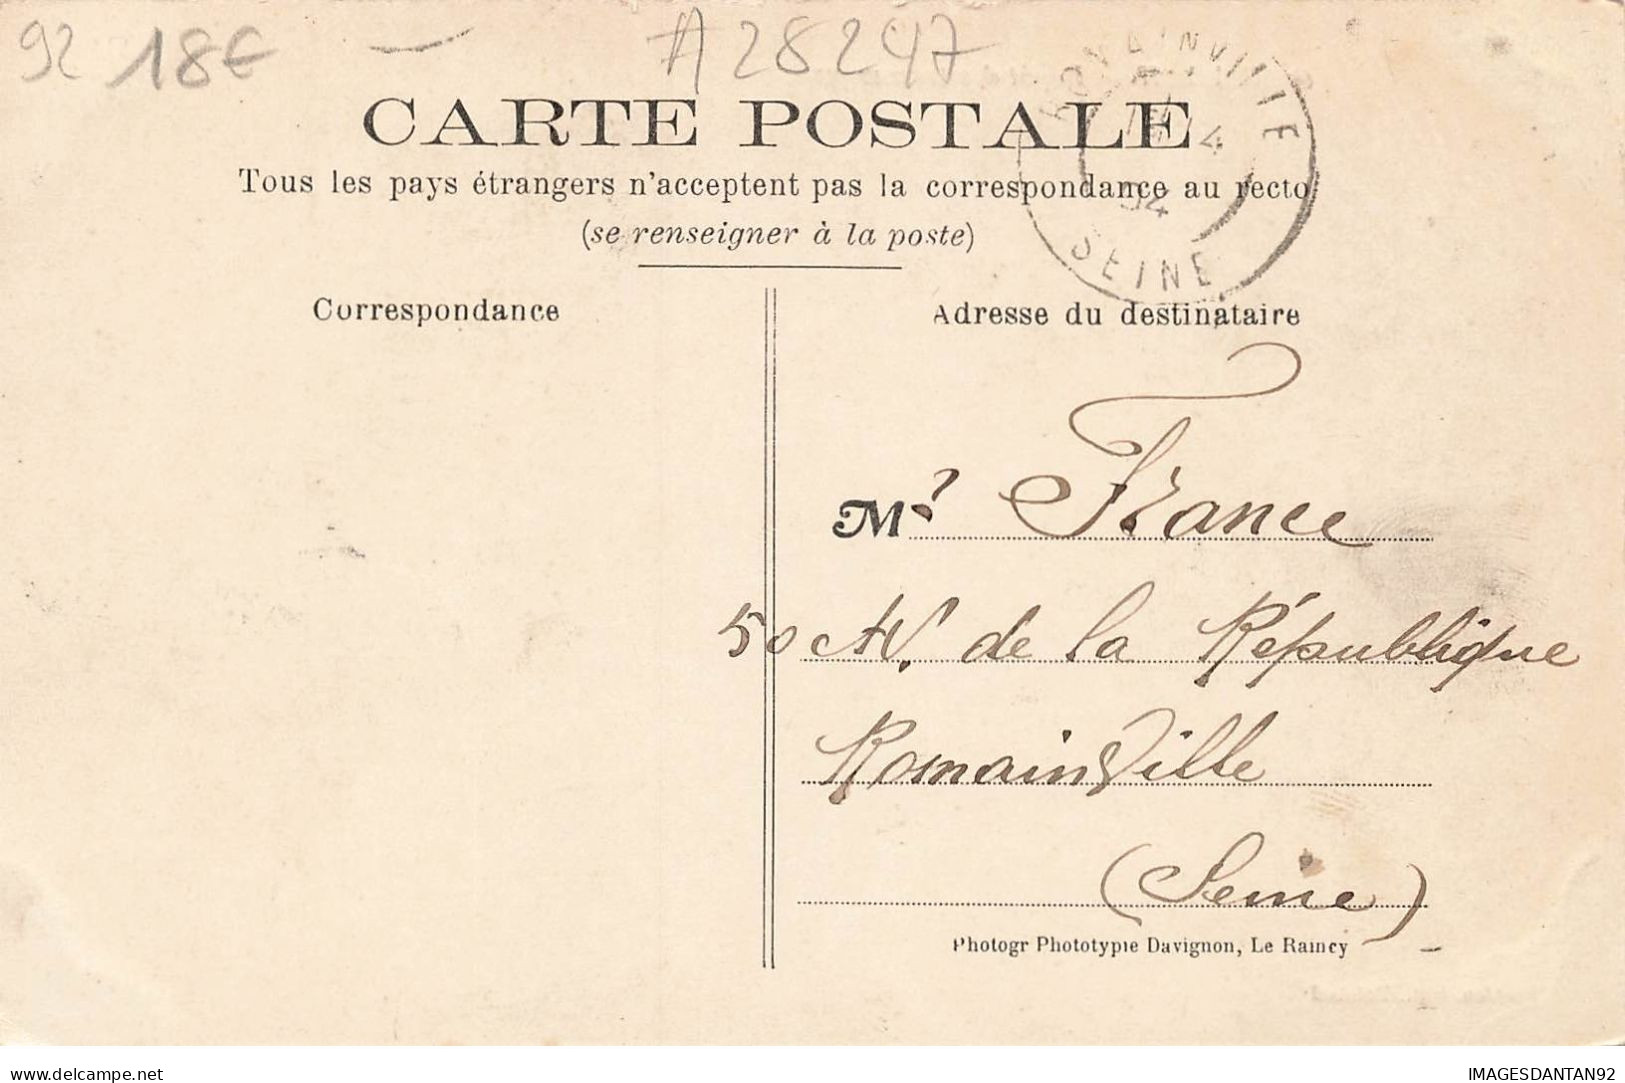 92 18€
A28247
ROMAINVILLE
SEINE
CARTE POSTALE
Tous les pays étrangers n'acceptent pas la correspondance au recto
(se renseigner à la poste)
Correspondance
Adresse du destinataire
Mr France
50 Av. de la République
Romainville
(Seine)
Photogr Phototypie Davignon, Le Raincy
delcampe.net
IMAGESDANTAN92